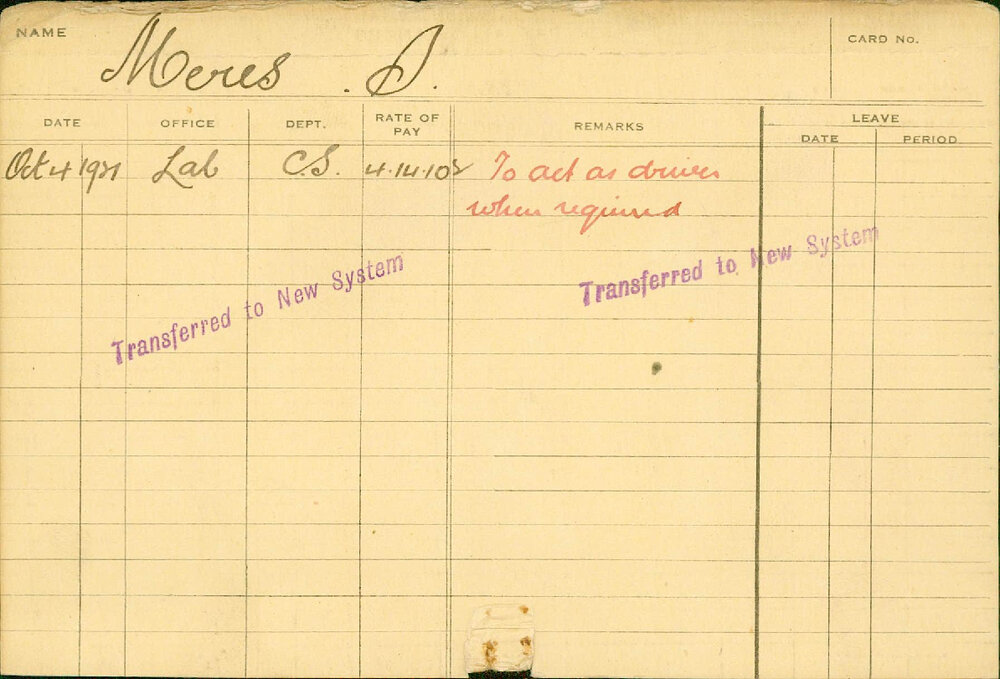 NAME Meres . S. CARD No.
DATE OFFICE DEPT. RATE OF PAY REMARKS LEAVE
DATE PERIOD
Oct 4 1921 Lab C.S. 4.14.10½ To act as driver
when required
Transferred to New System
Transferred to New System